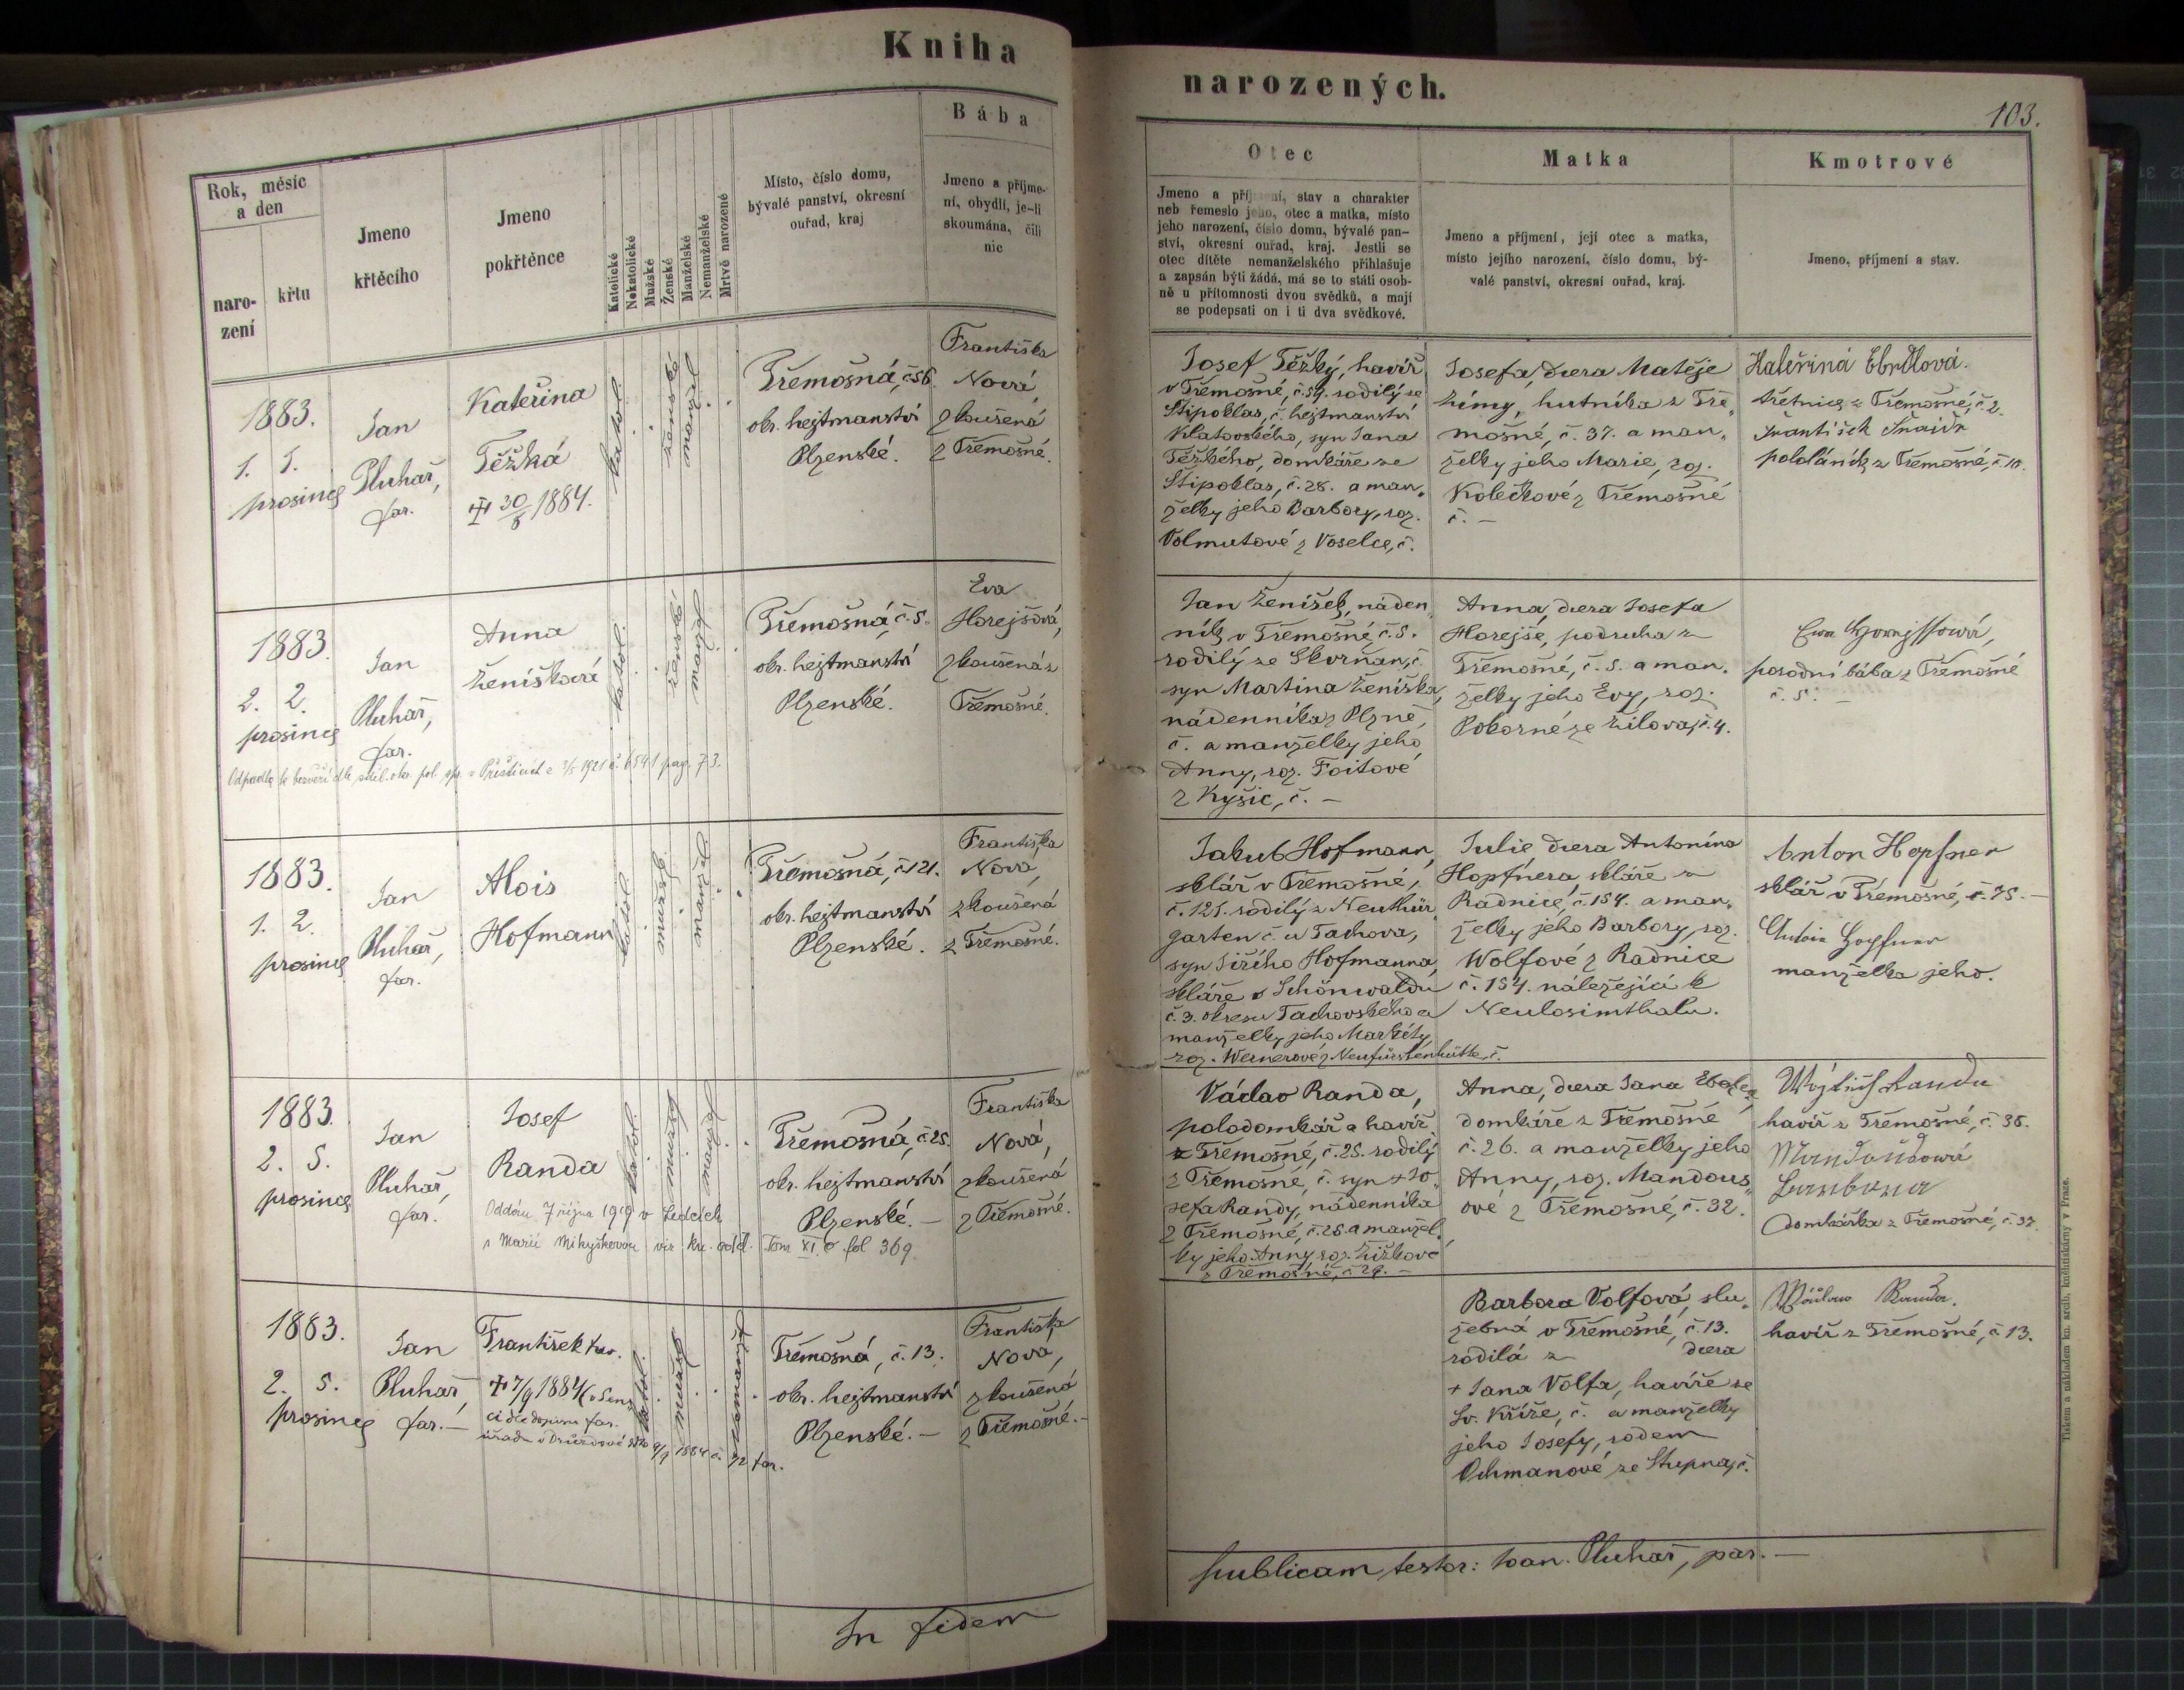 Kniha
narozených.
103.
Rok, měsíc
a den
naro-
zení
křtu
Jmeno
křtěcího
Jmeno
pokřtěnce
Katolické
Nekatolické
Mužské
Ženské
Manželské
Nemanželské
Mrtvě narozené
Místo, číslo domu,
bývalé panství, okresní
ouřad, kraj
Bába
Jmeno a příjme-
ní, obydlí, je-li
skoumána, čili
nic
Otec
Jmeno a příjmení, stav a charakter
neb řemeslo jeho, otec a matka, místo
jeho narození, číslo domu, bývalé pan-
ství, okresní ouřad, kraj. Jestli se
otec dítěte nemanželského přihlašuje
a zapsán býti žádá, má se to státi osob-
ně u přítomnosti dvou svědků, a mají
se podepsati on i ti dva svědkové.
Matka
Jmeno a příjmení, její otec a matka,
místo jejího narození, číslo domu, bý-
valé panství, okresní ouřad, kraj.
Kmotrové
Jmeno, příjmení a stav.
1883.
1. 5.
prosince
Jan
Pluhař,
far.
Kateřina
Těžká
30/8 1884.
katol.
ženské
manžel
Třemošná, č. 56
okr. hejtmanství
Plzenské.
Františka
Nová,
zkoušená
z Třemošné.
Josef Těžký, havíř
v Třemošné, č. 59. rodilý ze
Štipoklas, č. hejtmanství
Klatovského, syn Jana
Těžkého, domkáře ze
Štipoklas, č. 28. a man„
želky jeho Barbory, roz.
Volmutové z Voselce, č.
Josefa, dcera Matěje
Zímy, hutníka z Tře„
mošné, č. 37. a man„
želky jeho Marie, roz.
Kolečkové z Třemošné
č. –
Kateřina
z Třemošné, č. 2.
František Šnaidr
pololáník z Třemošné, č. 10.
1883.
2. 2.
prosince
Jan
Pluhař,
far.
Anna
Ženíšková
katol.
žensk.
manžel
Odpadla k bezvěří dle sděl. okr. pol. spr. v Přešticích z 3/5 1921 č. 6541 pag. 73.
Třemošná, č. 5.
okr. hejtmanství
Plzenské.
Eva
Horejšová,
zkoušená z
Třemošné.
Jan Ženíšek, náden„
ník v Třemošné č. 5.
rodilý ze Skvrňan, č.
syn Martina Ženíška,
nádenníka z Plzně,
č. a manželky jeho
Anny, roz. Foitové
z Kyšic, č. –
Anna, dcera Josefa
Horejše, podruha z
Třemošné, č. 5. a man„
želky jeho Evy, roz.
Pokorné ze Žilova, č. 4.
Ewa Horejssowá,
porodní bába z Třemošné
č. 5. –
1883.
1. 2.
prosince
Jan
Pluhař,
far.
Alois
Hofmann
katol
mužsk.
manžel
Třemošná, č. 121.
okr. hejtmanství
Plzenské.
Františka
Nová,
zkoušená
z Třemošné.
Jakub Hofmann,
sklář v Třemošné,
č. 121. rodilý z Neuthür„
garten č. u Tachova,
syn Jiřího Hofmanna,
skláře v Schönwaldu
č. 3. okresu Tachovského a
manželky jeho Markéty,
roz. Wernerové z Neufürstenhütte, č.
Julie dcera Antonína
Hopfnera, skláře z
Radnice, č. 154. a man„
želky jeho Barbory, roz.
Wolfové z Radnice
č. 154. náležející k
Neulosimthalu.
Anton Hopfner
sklář v Třemošné, č. 75. –
Hopfner
manželka jeho.
1883.
2. 5.
prosince
Jan
Pluhař,
far.
Josef
Randa
Oddán 7 října 1919 v Ledcích
s Marií Mikyškovou viz kn. odd. Tom XI. fol 369.
katol.
mužský
manžel
Třemošná, č. 25.
okr. hejtmanství
Plzenské. –
Františka
Nová,
zkoušená
z Třemošné.
Václav Randa,
polodomkář a havíř
z Třemošné, č. 25. rodilý
z Třemošné, č. syn + Jo„
sefa Randy, nádenníka
z Třemošné, č. 25. a manžel„
ky jeho Anny roz. Žižkové
z Třemošné, č. 29. –
Anna, dcera Jana
domkáře z Třemošné
č. 26. a manželky jeho
Anny, roz. Mandous„
ové z Třemošné, č. 32.
Wojtěch Randa
havíř z Třemošné, č. 35.
domkářka z Třemošné, č. 32.
1883.
2. 5.
prosince
Jan
Pluhař,
far. –
František Xav.
7/9 1884
ci dle dopisu far.
úřadu v Druzdové 9/9 1884 č. 72 far.
katol.
mužský
nemanž.
Třemošná, č. 13.
okr. hejtmanství
Plzenské. –
Františka
Nová,
zkoušená
z Třemošné. –
Barbora Volfová, slu„
žebná v Třemošné, č. 13.
rodilá z dcera
+ Jana Volfa, havíře ze
Sv. Kříže, č. a manželky
jeho Josefy, rodem
Ochmanové ze Stupna, č.
Wáclaw Randa.
havíř z Třemošné, č. 13.
In fidem
publicam testor: Joan. Pluhař, par. –
Tiskem a nákladem kn. arcib. knihtiskárny v Praze.